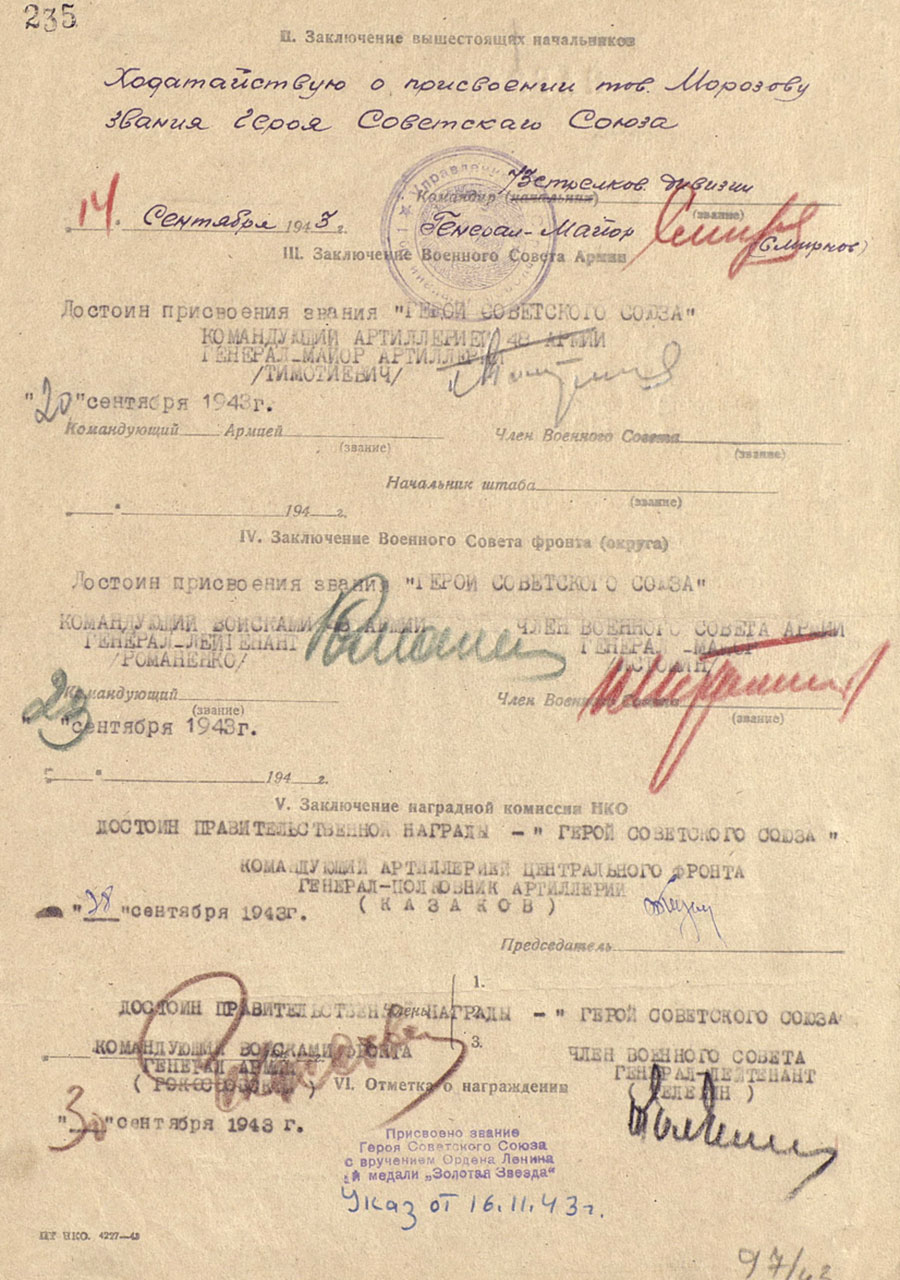 235
II. Заключение вышестоящих начальников
Ходатайствую о присвоении тов. Морозову
звания Героя Советскаго Союза
Командир (начальник) 73 стрелков дивизии
(звание)
"14" Сентября 1943 г. Генерал-Майор (Смирнов)
III. Заключение Военного Совета Армии
Достоин присвоения звания "ГЕРОЙ СОВЕТСКОГО СОЮЗА"
КОМАНДУЮЩИЙ АРТИЛЛЕРИЕЙ 48 АРМИИ
ГЕНЕРАЛ-МАЙОР АРТИЛЛЕРИИ
/ТИМОТИЕВИЧ/
"20" сентября 1943г.
Командующий Армией Член Военного Совета
(звание) (звание)
Начальник штаба
(звание)
" " 194 г.
IV. Заключение Военного Совета фронта (округа)
Достоин присвоения звания "ГЕРОЙ СОВЕТСКОГО СОЮЗА"
КОМАНДУЮЩИЙ ВОЙСКАМИ 48 АРМИИ ЧЛЕН ВОЕННОГО СОВЕТА АРМИИ
ГЕНЕРАЛ-ЛЕЙТЕНАНТ ГЕНЕРАЛ-МАЙОР
/РОМАНЕНКО/
Командующий Член Военного Совета
(звание) (звание)
"23" сентября 1943г.
" " 194 г.
V. Заключение наградной комиссии НКО
ДОСТОИН ПРАВИТЕЛЬСТВЕННОЙ НАГРАДЫ - "ГЕРОЙ СОВЕТСКОГО СОЮЗА"
КОМАНДУЮЩИЙ АРТИЛЛЕРИЕЙ ЦЕНТРАЛЬНОГО ФРОНТА
ГЕНЕРАЛ-ПОЛКОВНИК АРТИЛЛЕРИИ
(КАЗАКОВ)
"28" сентября 1943г.
Председатель
1.
Члены
ДОСТОИН ПРАВИТЕЛЬСТВЕННОЙ НАГРАДЫ - "ГЕРОЙ СОВЕТСКОГО СОЮЗА
3.
КОМАНДУЮЩИЙ ВОЙСКАМИ ФРОНТА ЧЛЕН ВОЕННОГО СОВЕТА
ГЕНЕРАЛ АРМИИ ГЕНЕРАЛ-ЛЕЙТЕНАНТ
(РОКОССОВСКИЙ) VI. Отметка о награждении (ТЕЛЕГИН)
"30" сентября 1943 г.
Присвоено звание
Героя Советского Союза
с вручением Ордена Ленина
и медали „Золотая Звезда"
Указ от 16.11.43г.
НКО. 4227—43